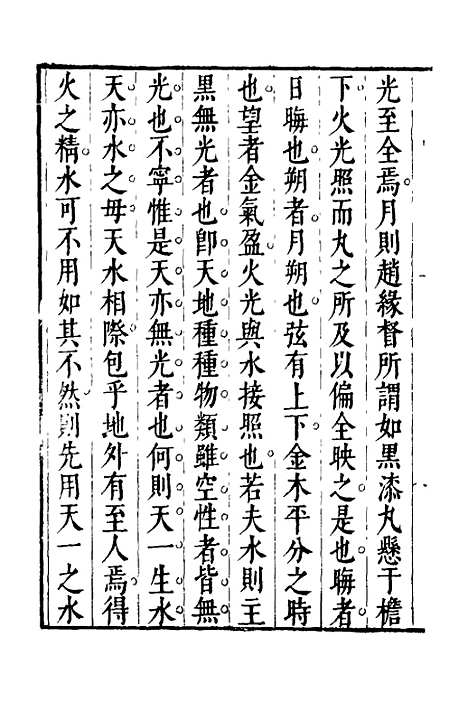 光至全焉月則趙緣督所謂如黑漆丸懸于檐
下火光照而丸之所及以偏全映之是也晦者
日晦也朔者月朔也弦有上下金木平分之時
也望者金氣盈火光與水接照也若夫水則主
黑無光者也卽天地種種物類雖空性者皆無
光也不寧惟是天亦無光者也何則天一生水
天亦水之毋天水相際包乎地外有至人焉得
火之精水可不用如其不然則先用天一之水